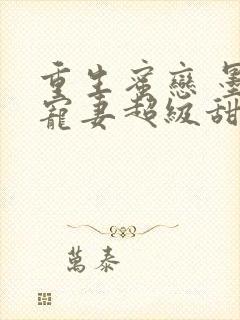 重生蜜戀 墨
寵妻超級甜
萬泰